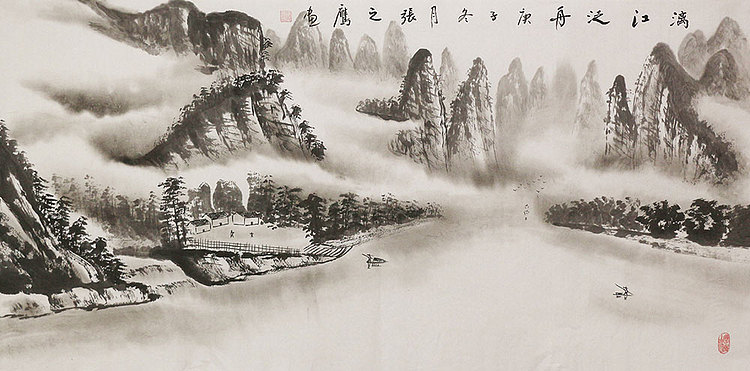 漓江泛舟庚子冬月張之鷹畫